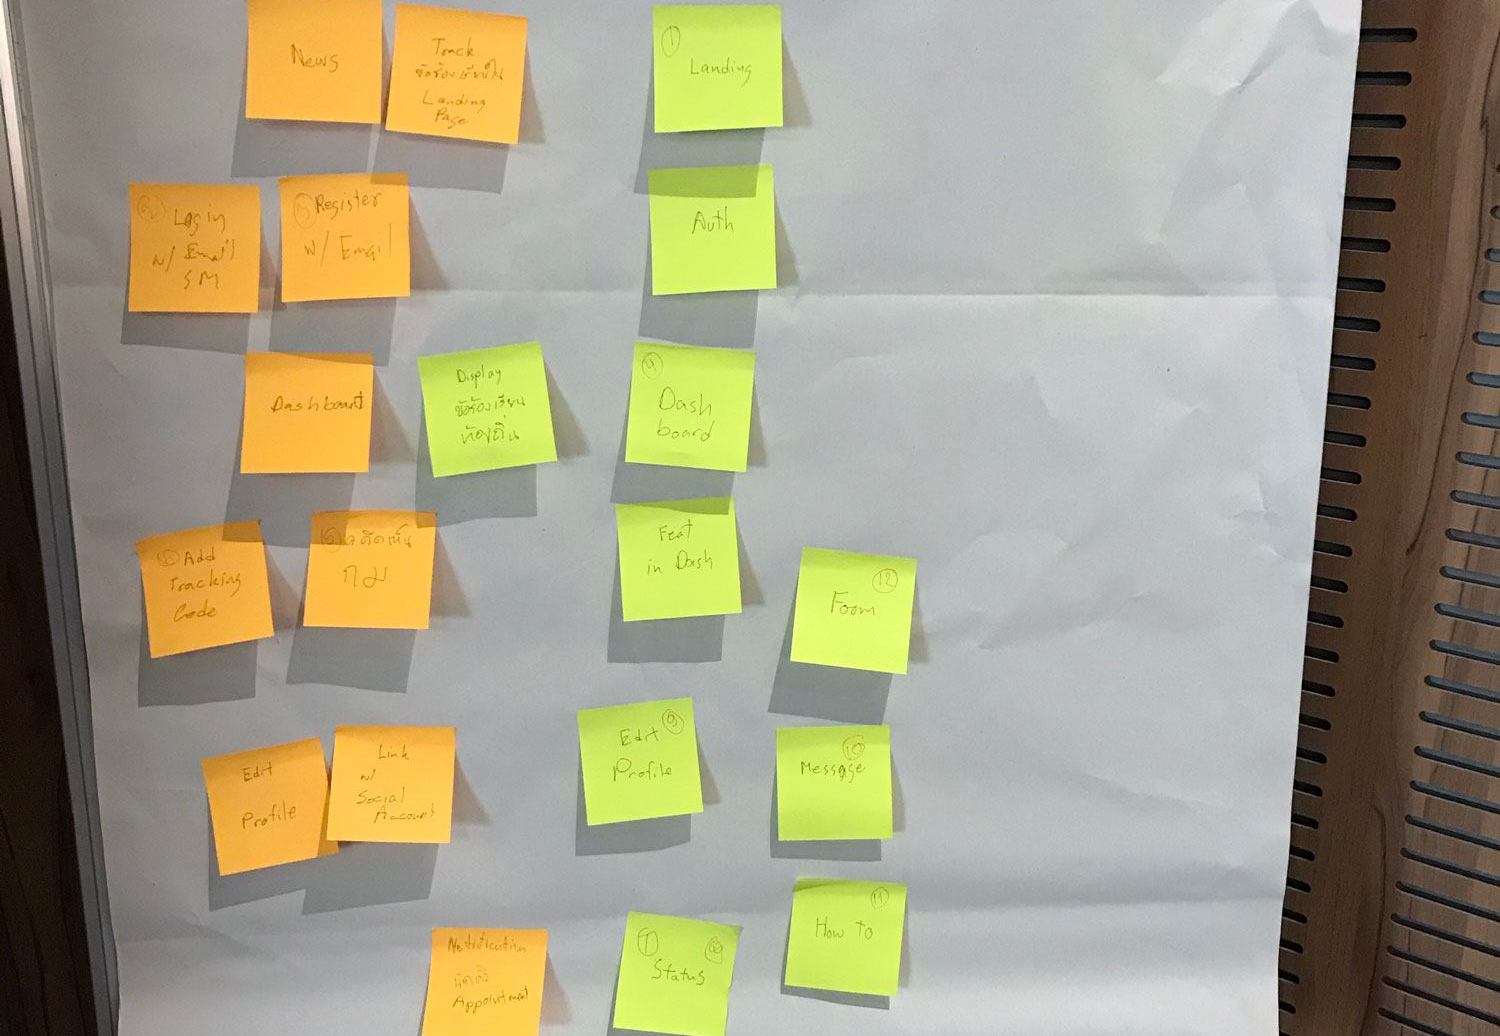 News
Track
ข้อร้องเรียนใน
Landing
Page
1
Landing
2 Login
w/ Email
SM
3 Register
w/ Email
Auth
Dashboard
Display
ข้อร้องเรียน
ท้องถิ่น
4
Dash
board
Add
Tracking
Code
กม
Feat
in Dash
12
Form
Edit
Profile
Link
w/
Social
Account
Edit 9
Profile
10
Message
Notification
Appointment
7
Status
11
How to